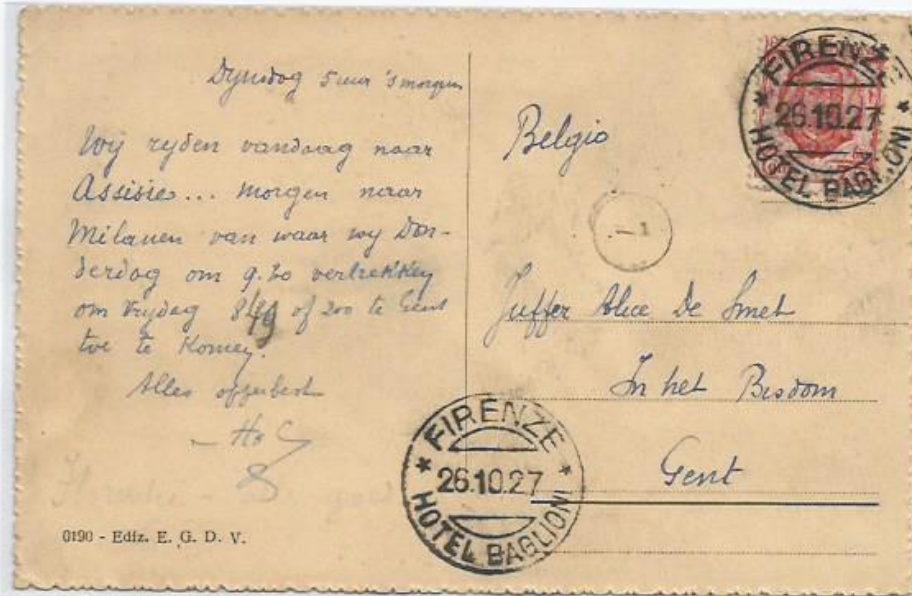 Dynsdag 5 uur 's morgens
Wij ryden vandaag naar
Assisie... morgen naar
Milanen van waar wy Don-
derdag om 9.20 vertrekken
om Vrydag 8 of zoo te Gent
toe te komen.
Alles opperbest
FIRENZE
26.10.27
HOTEL BAGLIONI
Belgio
Juffer Alice De Smet
In het Bisdom
Gent
FIRENZE
26.10.27
HOTEL BAGLIONI
0190 - Ediz. E. G. D. V.